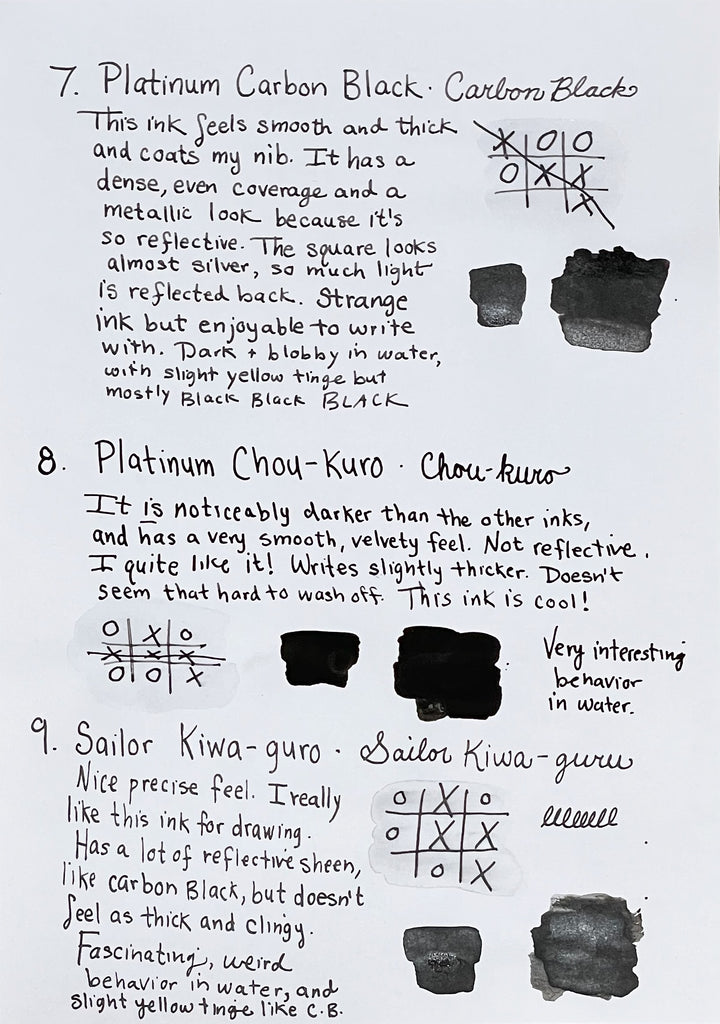 7. Platinum Carbon Black · Carbon Black
This ink feels smooth and thick
and coats my nib. It has a
dense, even coverage and a
metallic look because it's
so reflective. The square looks
almost silver, so much light
is reflected back. Strange
ink but enjoyable to write
with. Dark + blobby in water,
with slight yellow tinge but
mostly Black Black BLACK
X O O
O X X
X
8. Platinum Chou-Kuro · Chou-kuro
It is noticeably darker than the other inks,
and has a very smooth, velvety feel. Not reflective.
I quite like it! Writes slightly thicker. Doesn't
seem that hard to wash off. This ink is cool!
O X O
X X X
O O X
Very interesting
behavior
in water.
9. Sailor Kiwa-guro · Sailor Kiwa-guru
Nice precise feel. I really
like this ink for drawing.
Has a lot of reflective sheen,
like carbon Black, but doesn't
feel as thick and clingy.
Fascinating, weird
behavior in water, and
slight yellow tinge like C.B.
O X O
O X X
O X